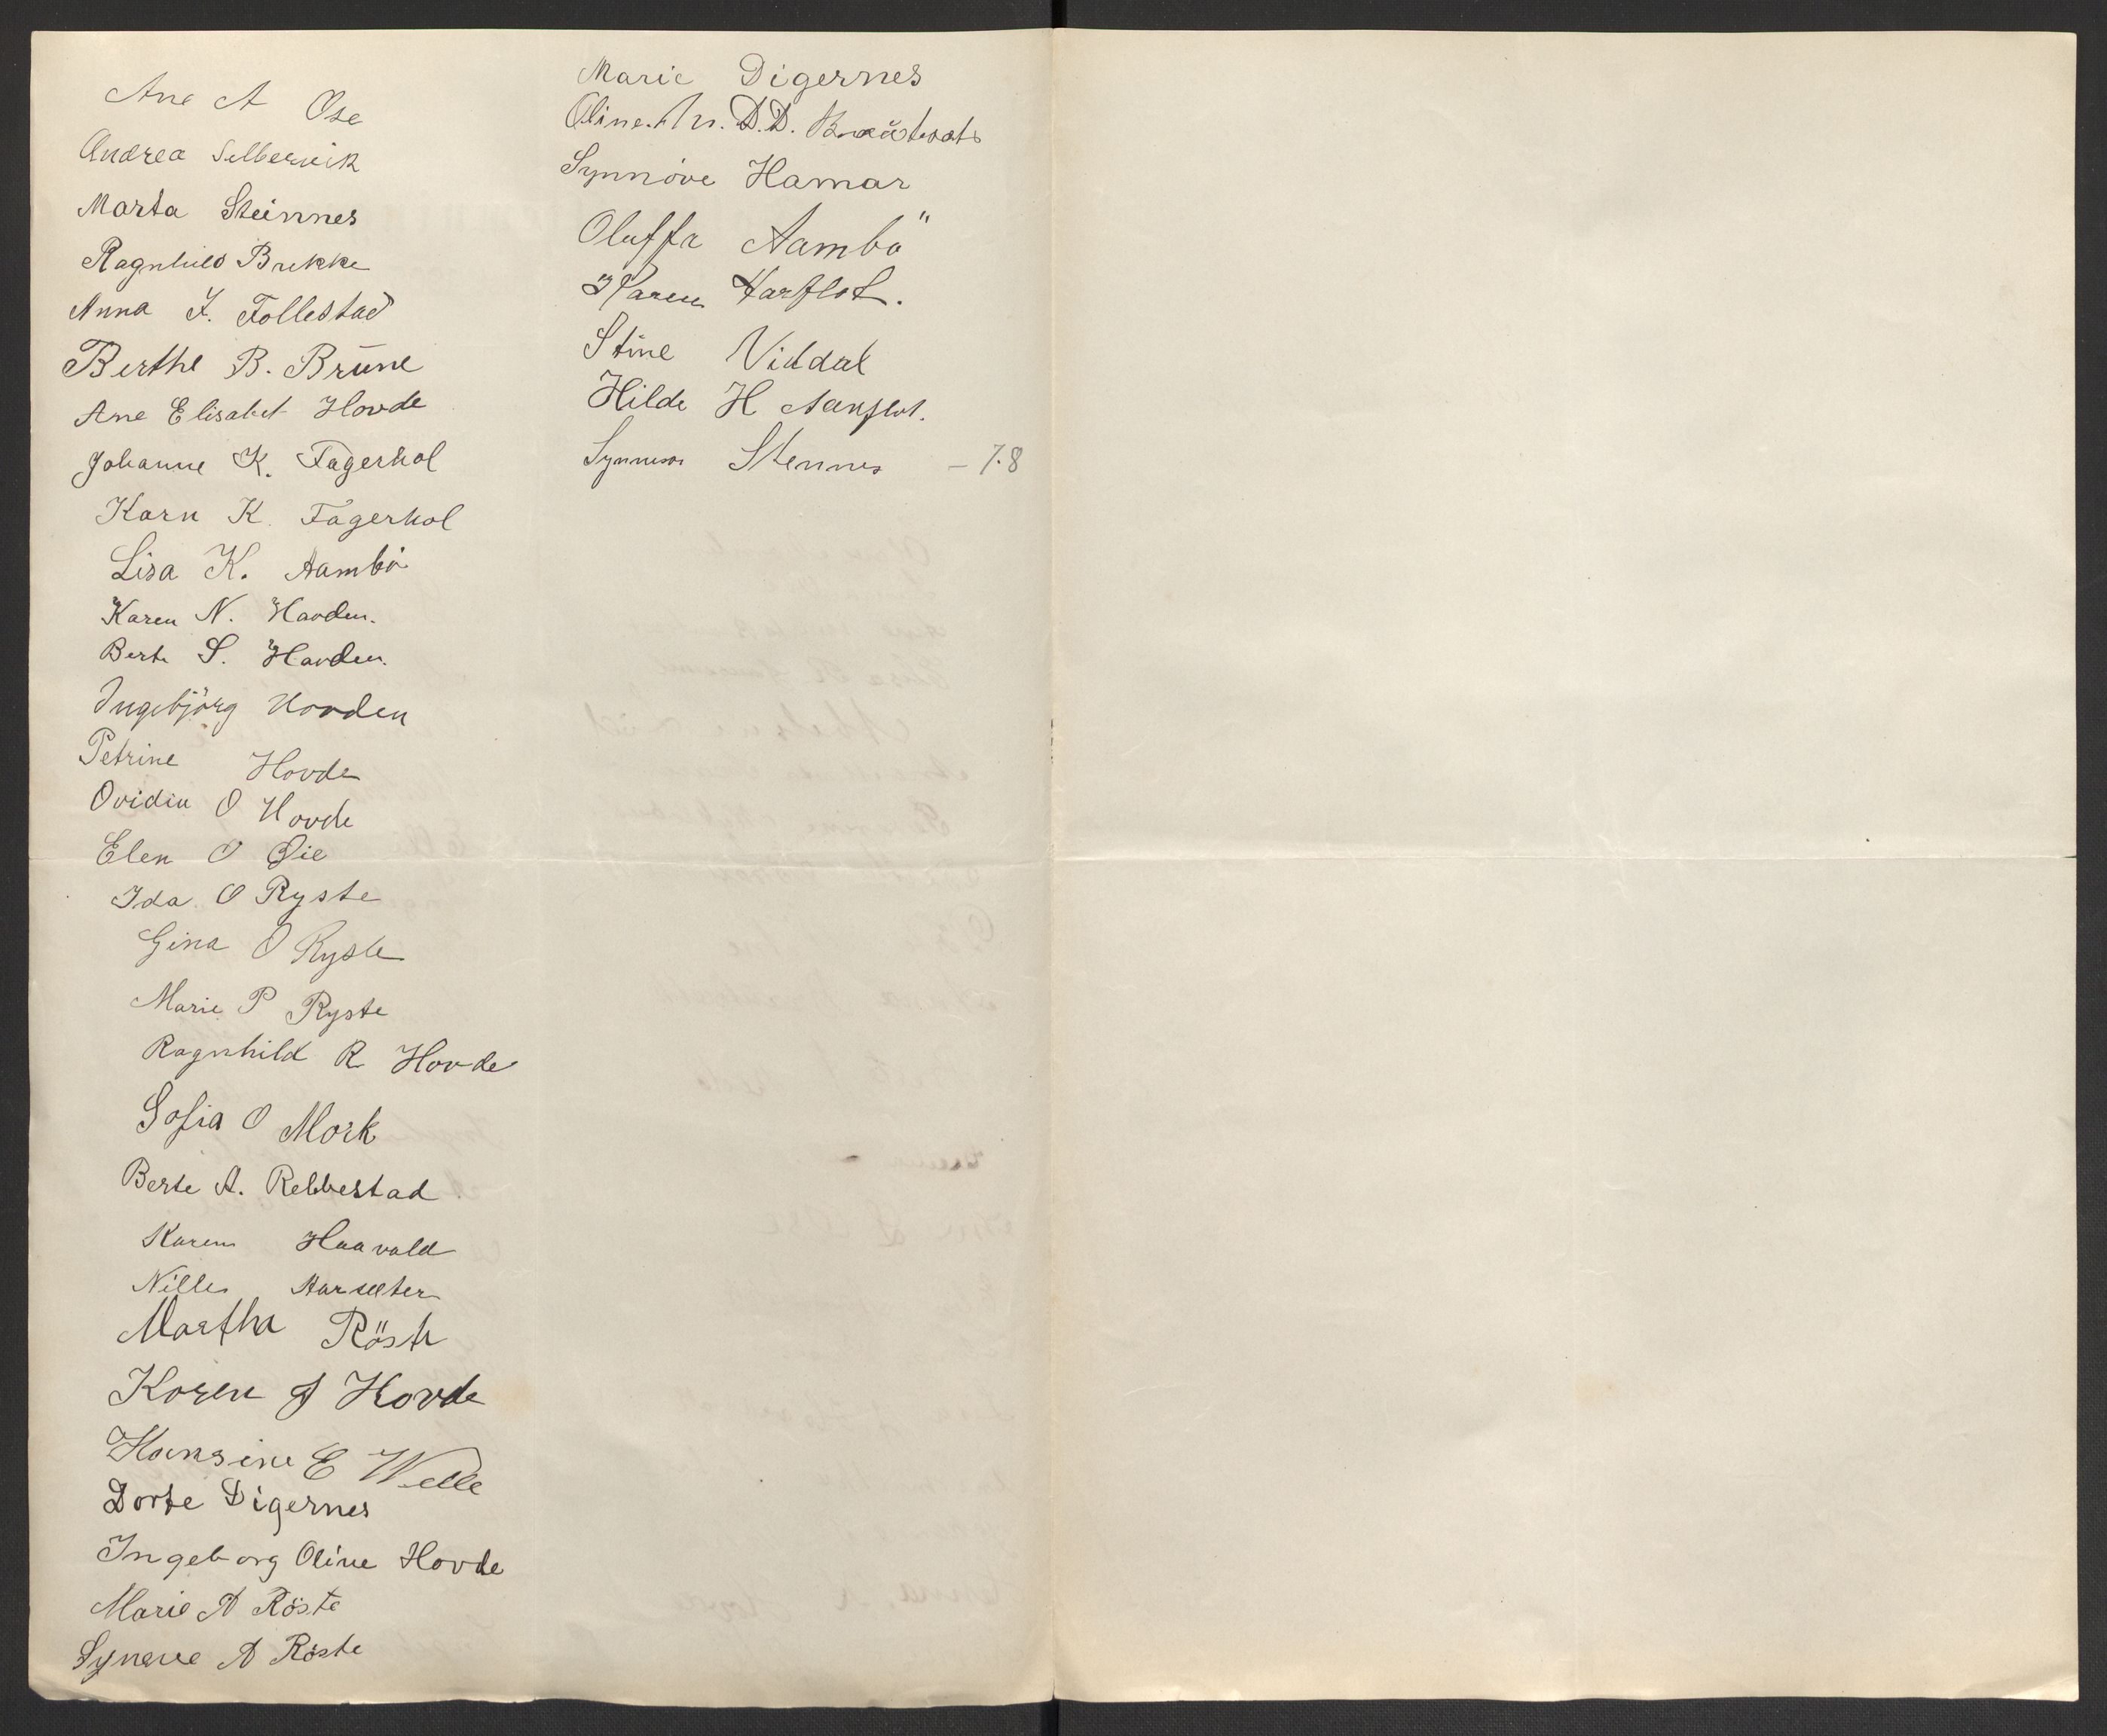 Ane A Ose
Andrea Selbervik
Marta Steinnes
Ragnhild Brekke
Anna I. Follestad
Berthe B. Brune
Ane Elisabet Hovde
Johanne K. Fagerhol
Karn K. Fagerhol
Lisa K. Aambö
Karen N. Havden.
Berte S. Havden.
Ingebjörg Hovden
Petrine Hovde
Ovidia O Hovde
Elen O Øie
Ida O Ryste
Gina O Ryste
Marie P Ryste
Ragnhild R Hovde
Sofia O Mork
Berte A. Rebbestad
Karen Haavald
Nille Aarsæter
Martha Röste
Karen J Hovde
Hansine E Welle
Dorte Digernes
Ingeborg Oline Hovde
Marie A Röste
Syneve A Röste
Marie Digernes
Oline. M. D.D.
Synnöve Hamar
Oluffa Aambö
Karen Aarflot.
Stine Viddal
Hilde H Aarflot.
Stennes - 78